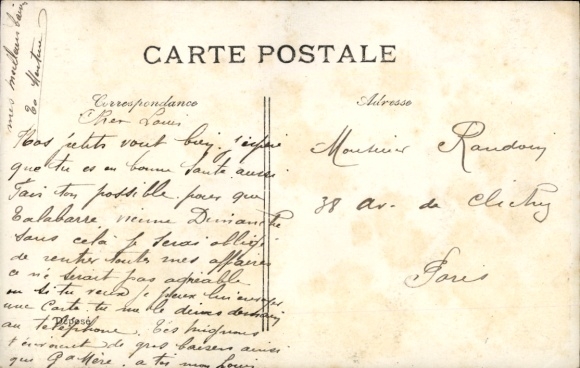 CARTE POSTALE
Correspondance
Cher Louis
Nos petits vont bien, j'espère
que tu es en bonne santé aussi
Fais ton possible pour que
Talabarre vienne Dimanche
sans cela je serai obligé
de rentrer toutes mes affaires
ce ne serait pas agréable
ou si tu veux je peux lui envoyer
une carte. tu me le diras demain
au téléphone. Tes mignons
t'envoient de gros baisers ainsi
que Gd Mère. a toi mon Louis
Déposé
mes meilleurs baisers
Adresse
Monsieur Randoin
38 av. de Clichy
Paris